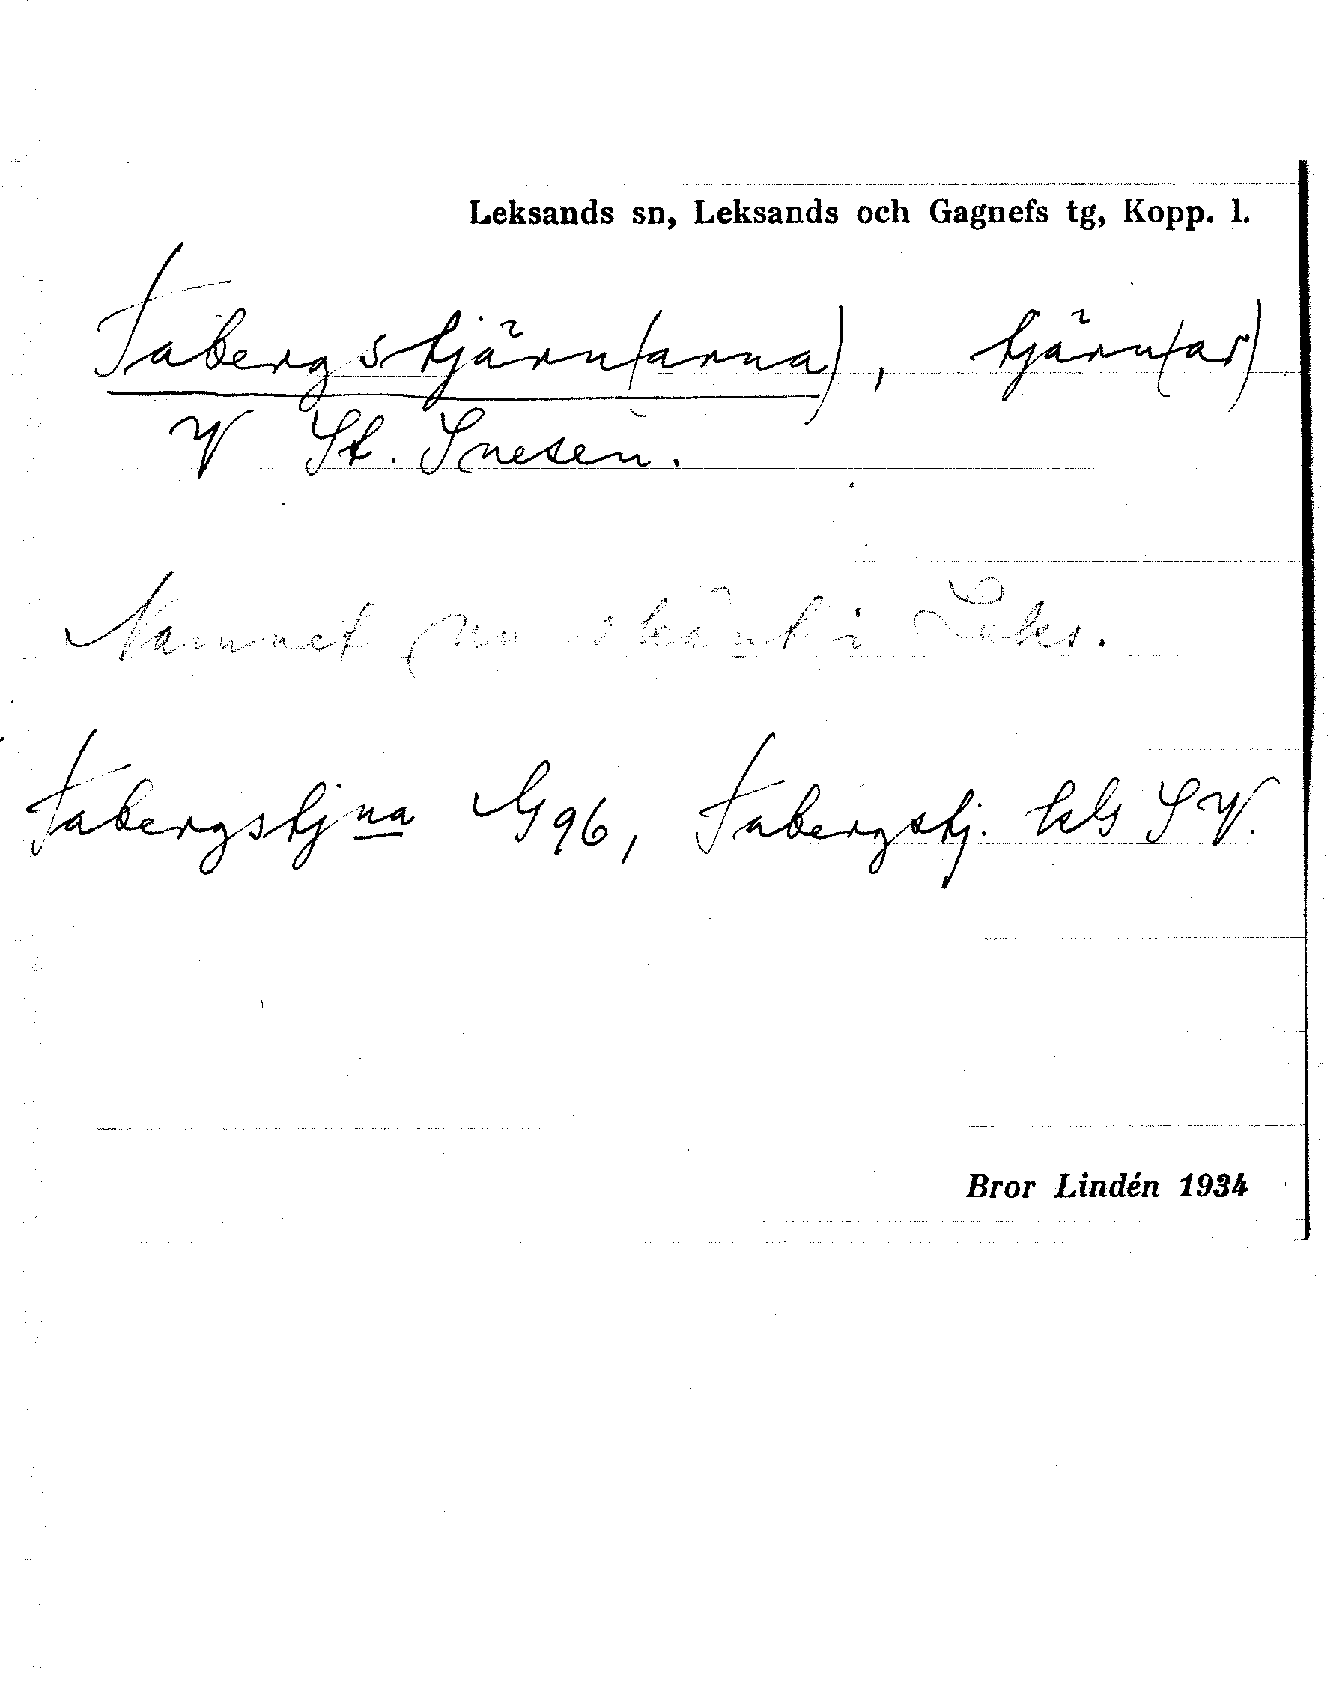 Leksands sn, Leksands och Gagnefs tg, Kopp. l.
Fabergstjärn(arna), tjärn(ar)
V St. Snesen.
Namnet nu okänt i Leks.
Fabergstjna G 96, Fabergstj. hls SV.
Bror Lindén 1934